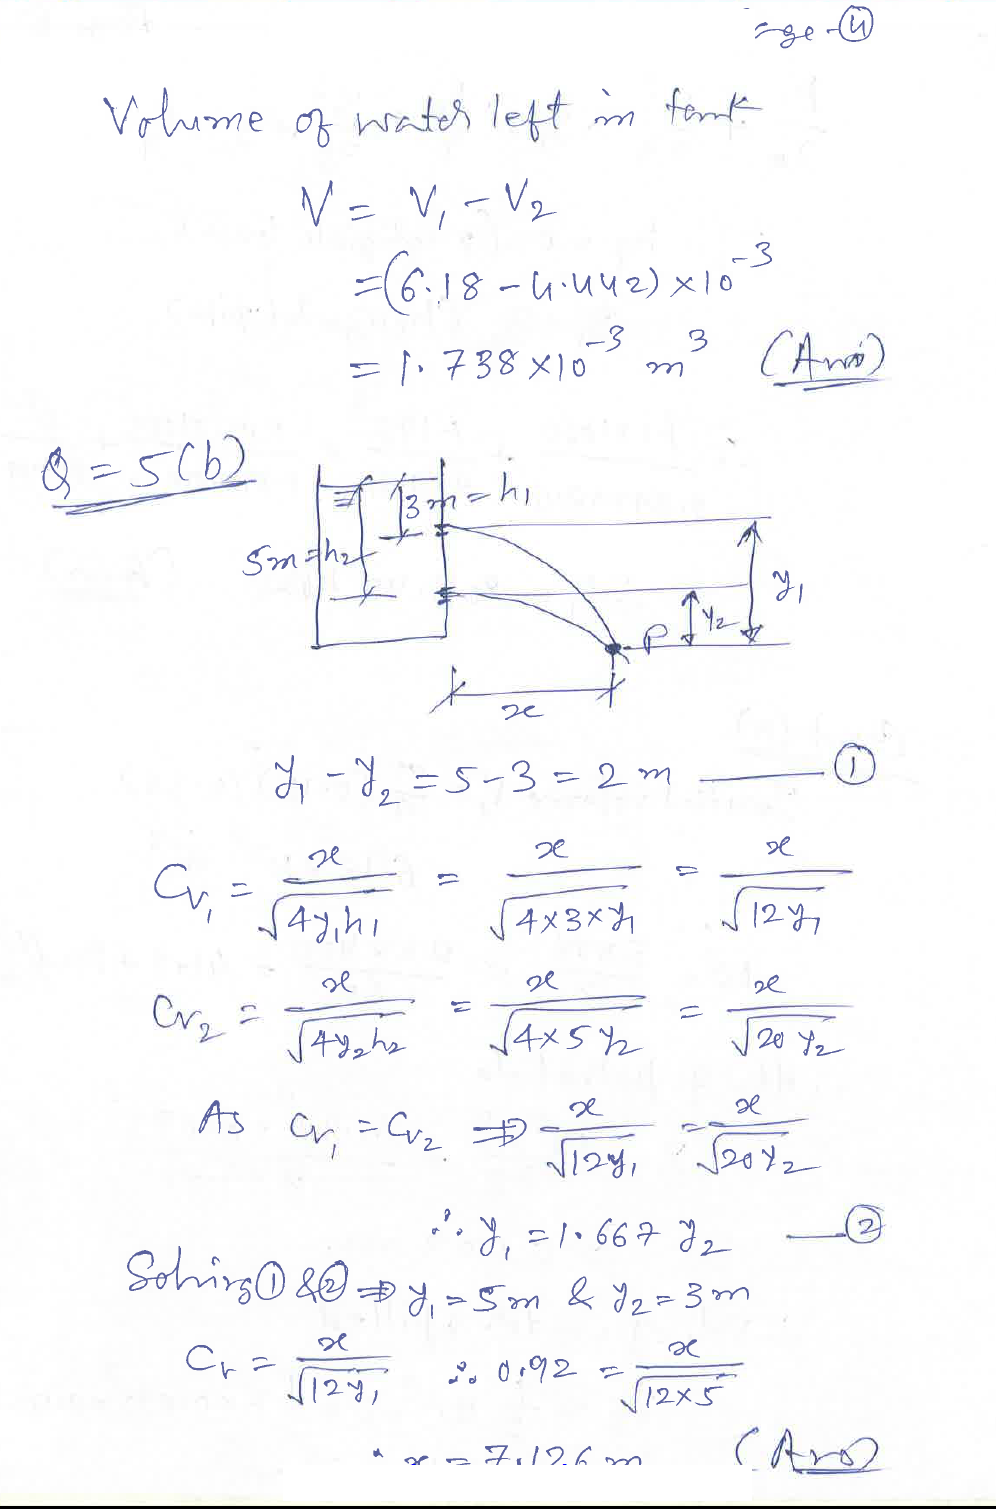 ge - ④
Volume of water left in tank
V = V₁ - V₂
= (6.18 - 4.442) × 10⁻³
= 1.738 × 10⁻³ m³ (Ans)
Q = 5(b)
3m = h₁
5m = h₂
y₁
y₂
P
x
y₁ - y₂ = 5 - 3 = 2 m — ①
Cv₁ = x / √(4y₁h₁) = x / √(4×3×y₁) = x / √(12y₁)
Cv₂ = x / √(4y₂h₂) = x / √(4×5y₂) = x / √(20y₂)
As Cv₁ = Cv₂ ⇒ x / √(12y₁) = x / √(20y₂)
∴ y₁ = 1.667 y₂ — ②
Solving ① & ② ⇒ y₁ = 5m & y₂ = 3m
Cv = x / √(12y₁) ∴ 0.92 = x / √(12×5)
∴ x = 7.126 m (Ans)